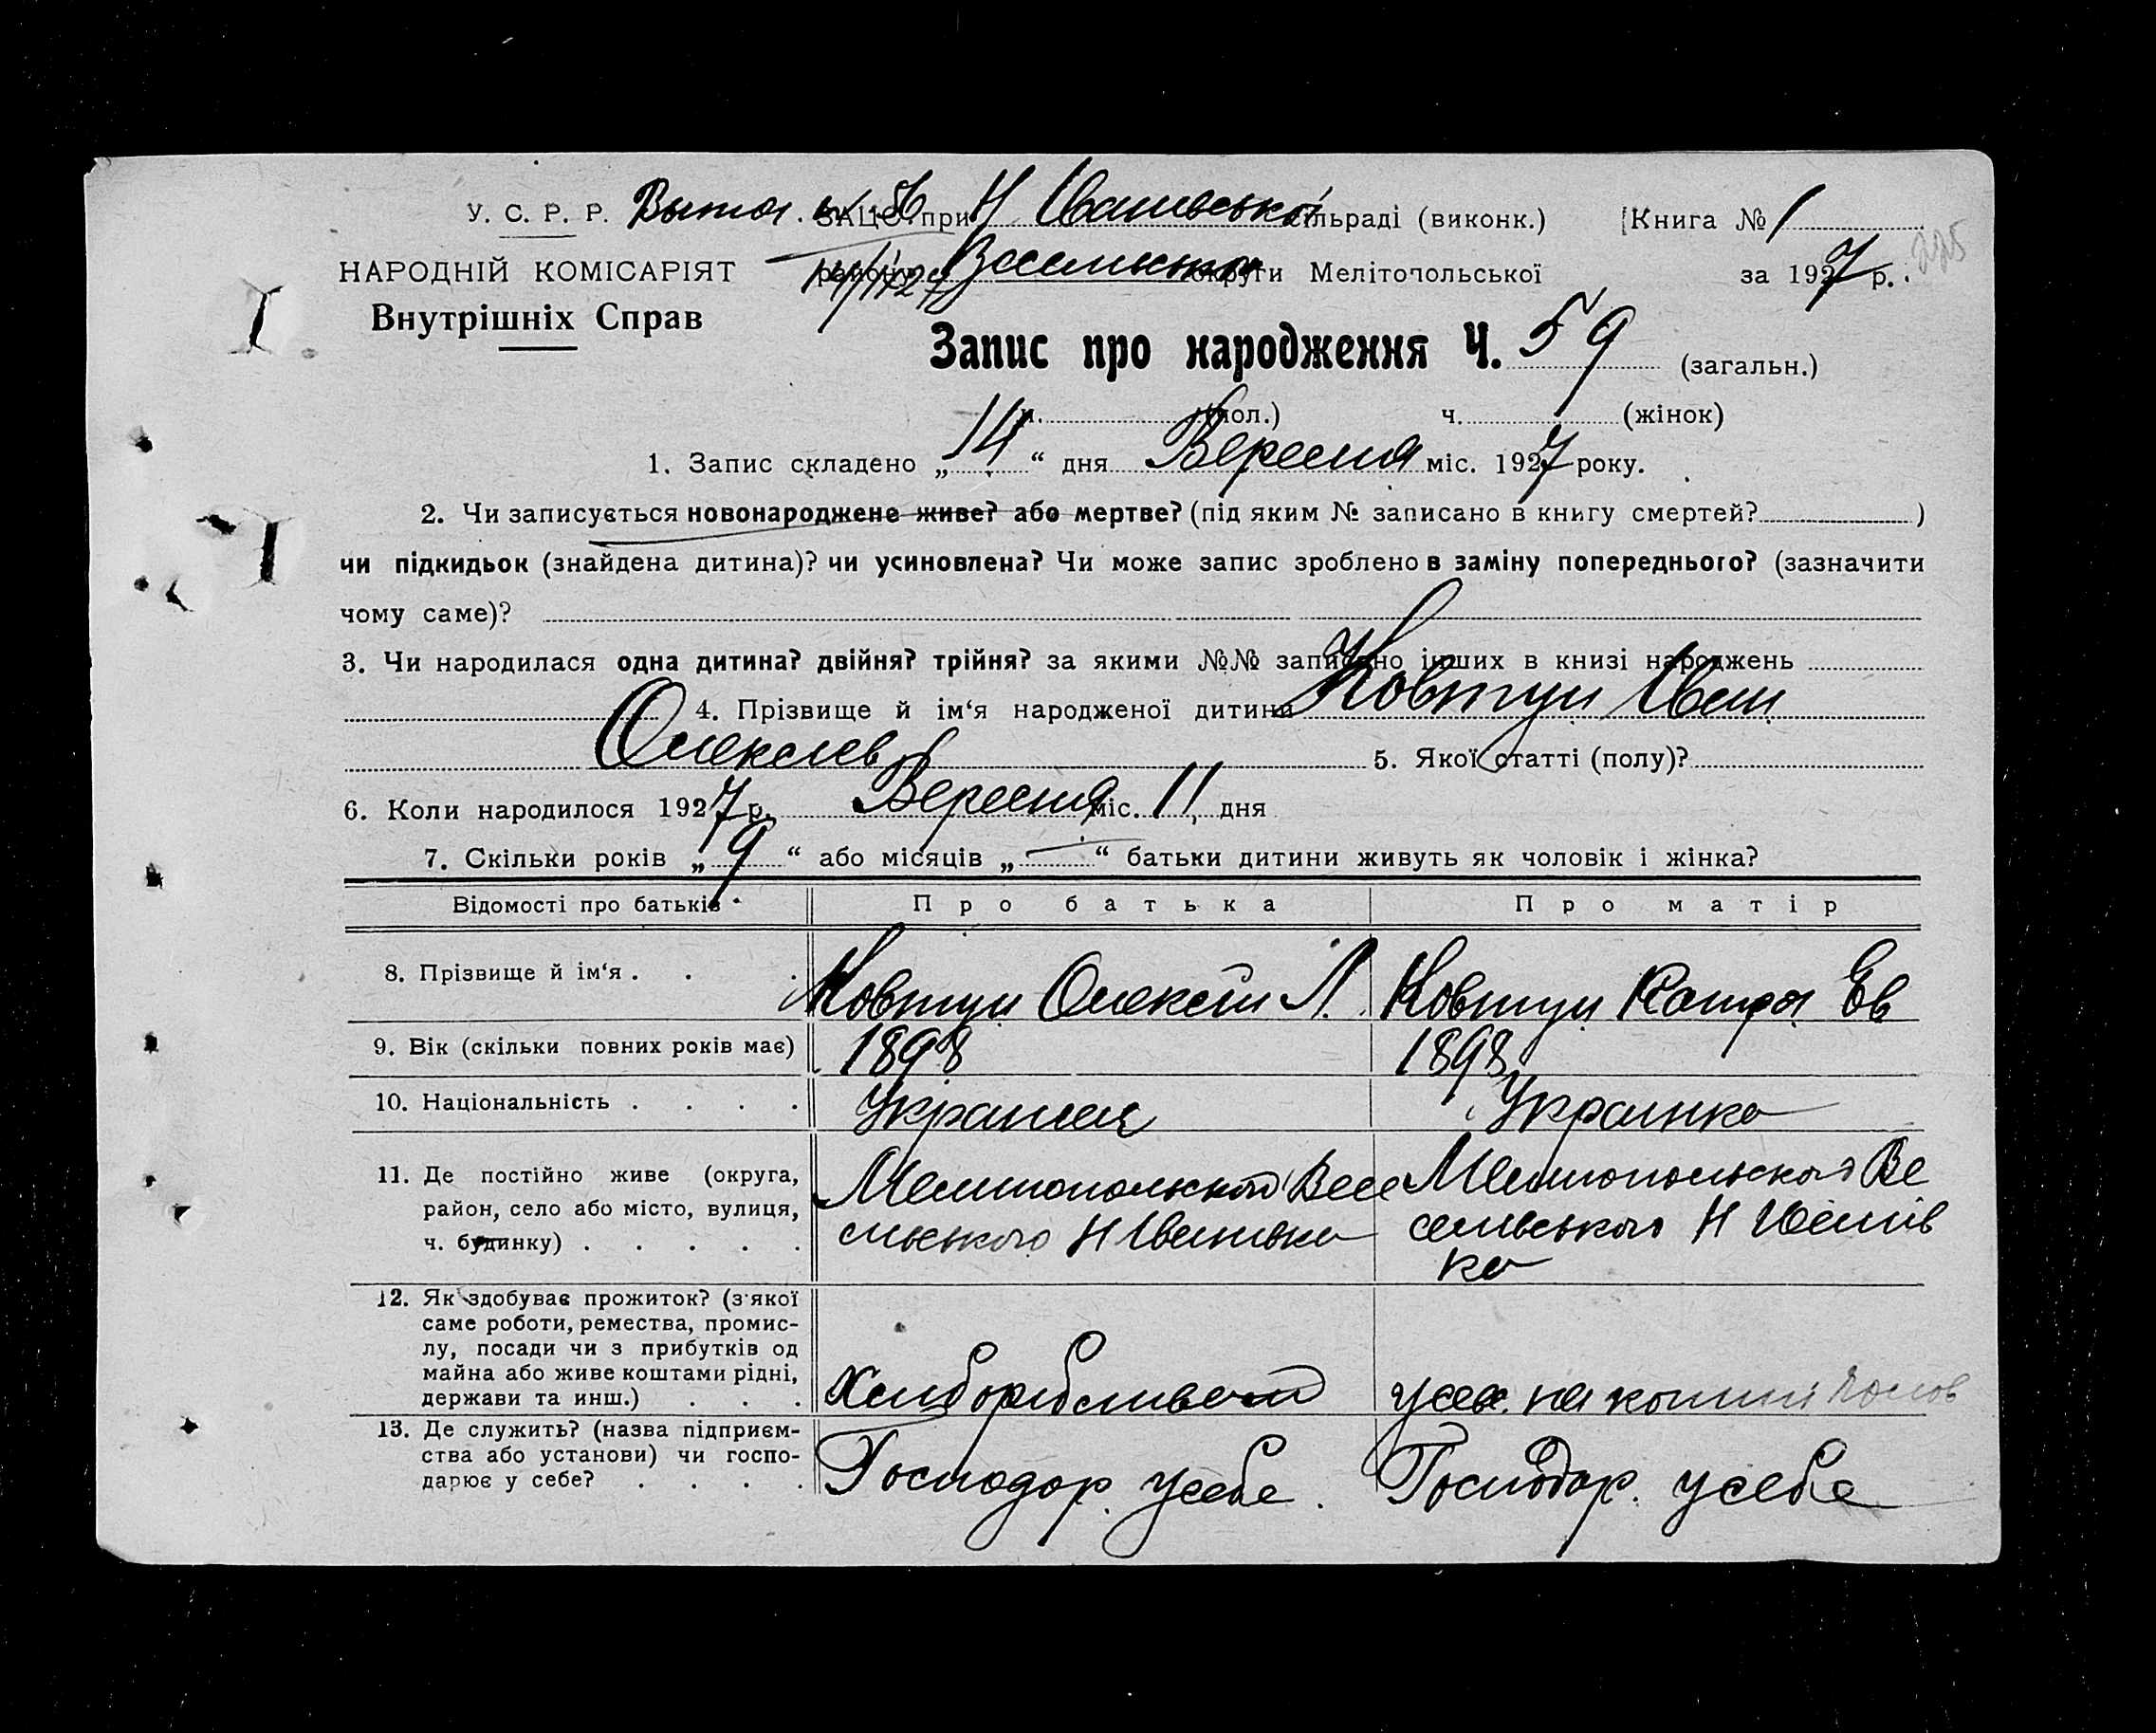 У. С. Р. Р. ЗАЦС при Н Іванівської сільраді (виконк.) Книга № 1
НАРОДНІЙ КОМІСАРІЯТ району округи Мелітопольської за 1927 р.
225
Внутрішніх Справ
Запис про народження Ч. 59 (загальн.)
ч. (чол.) ч. (жінок)
1. Запис складено „14“ дня Вересня міс. 1927 року.
2. Чи записується новонароджене живе? або мертве? (під яким № записано в книгу смертей? )
чи підкидьок (знайдена дитина)? чи усиновлена? Чи може запис зроблено в заміну попереднього? (зазначити
чому саме)?
3. Чи народилася одна дитина? двійня? трійня? за якими №№ записано інших в книзі народжень
4. Прізвище й ім‘я народженої дитини Ковтун Іван
Олексієв 5. Якої статті (полу)?
6. Коли народилося 1927 р. Вересня міс. 11 дня
7. Скільки років „9“ або місяців „—“ батьки дитини живуть як чоловік і жінка?
Відомості про батьків Про батька Про матір
8. Прізвище й ім‘я . . . Ковтун Олексій Л. Ковтун Катря Єв
9. Вік (скільки повних років має) 1898 1898
10. Національність . . . . Українец Украинка
11. Де постійно живе (округа, Мелитопольської Весе Мелитопольской Ве
район, село або місто, вулиця, Н Іванівка селівського Н Іванів
ч. будинку) . . . . . ка
12. Як здобуває прожиток? (з якої
саме роботи, ремества, промис-
лу, посади чи з прибутків од
майна або живе коштами рідні,
держави та инш.) . . . на кошти чолов
13. Де служить? (назва підприєм-
ства або установи) чи госпо- Господар. усебе. Господар. усебе
дарює у себе? . . . .